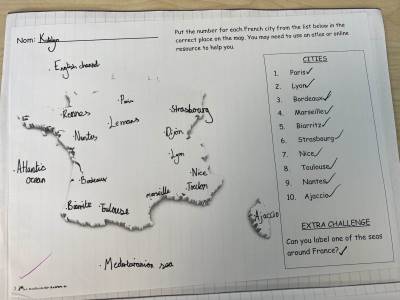 Nom: Katelyn
Put the number for each French city from the list below in the
correct place on the map. You may need to use an atlas or online
resource to help you.
• English channel
• Paris
• Rennes
• Lemans
• Strasbourg
• Nantes
• Dijon
• Lyon
• Atlantic
ocean
• Bordeaux
• Nice
Marseille
• Toulon
• Biarritz
• Toulouse
• Ajaccio
• Mediterranian sea
CITIES
1. Paris ✓
2. Lyon ✓
3. Bordeaux ✓
4. Marseille ✓
5. Biarritz ✓
6. Strasbourg ✓
7. Nice ✓
8. Toulouse ✓
9. Nantes ✓
10. Ajaccio ✓
EXTRA CHALLENGE
Can you label one of the seas
around France? ✓